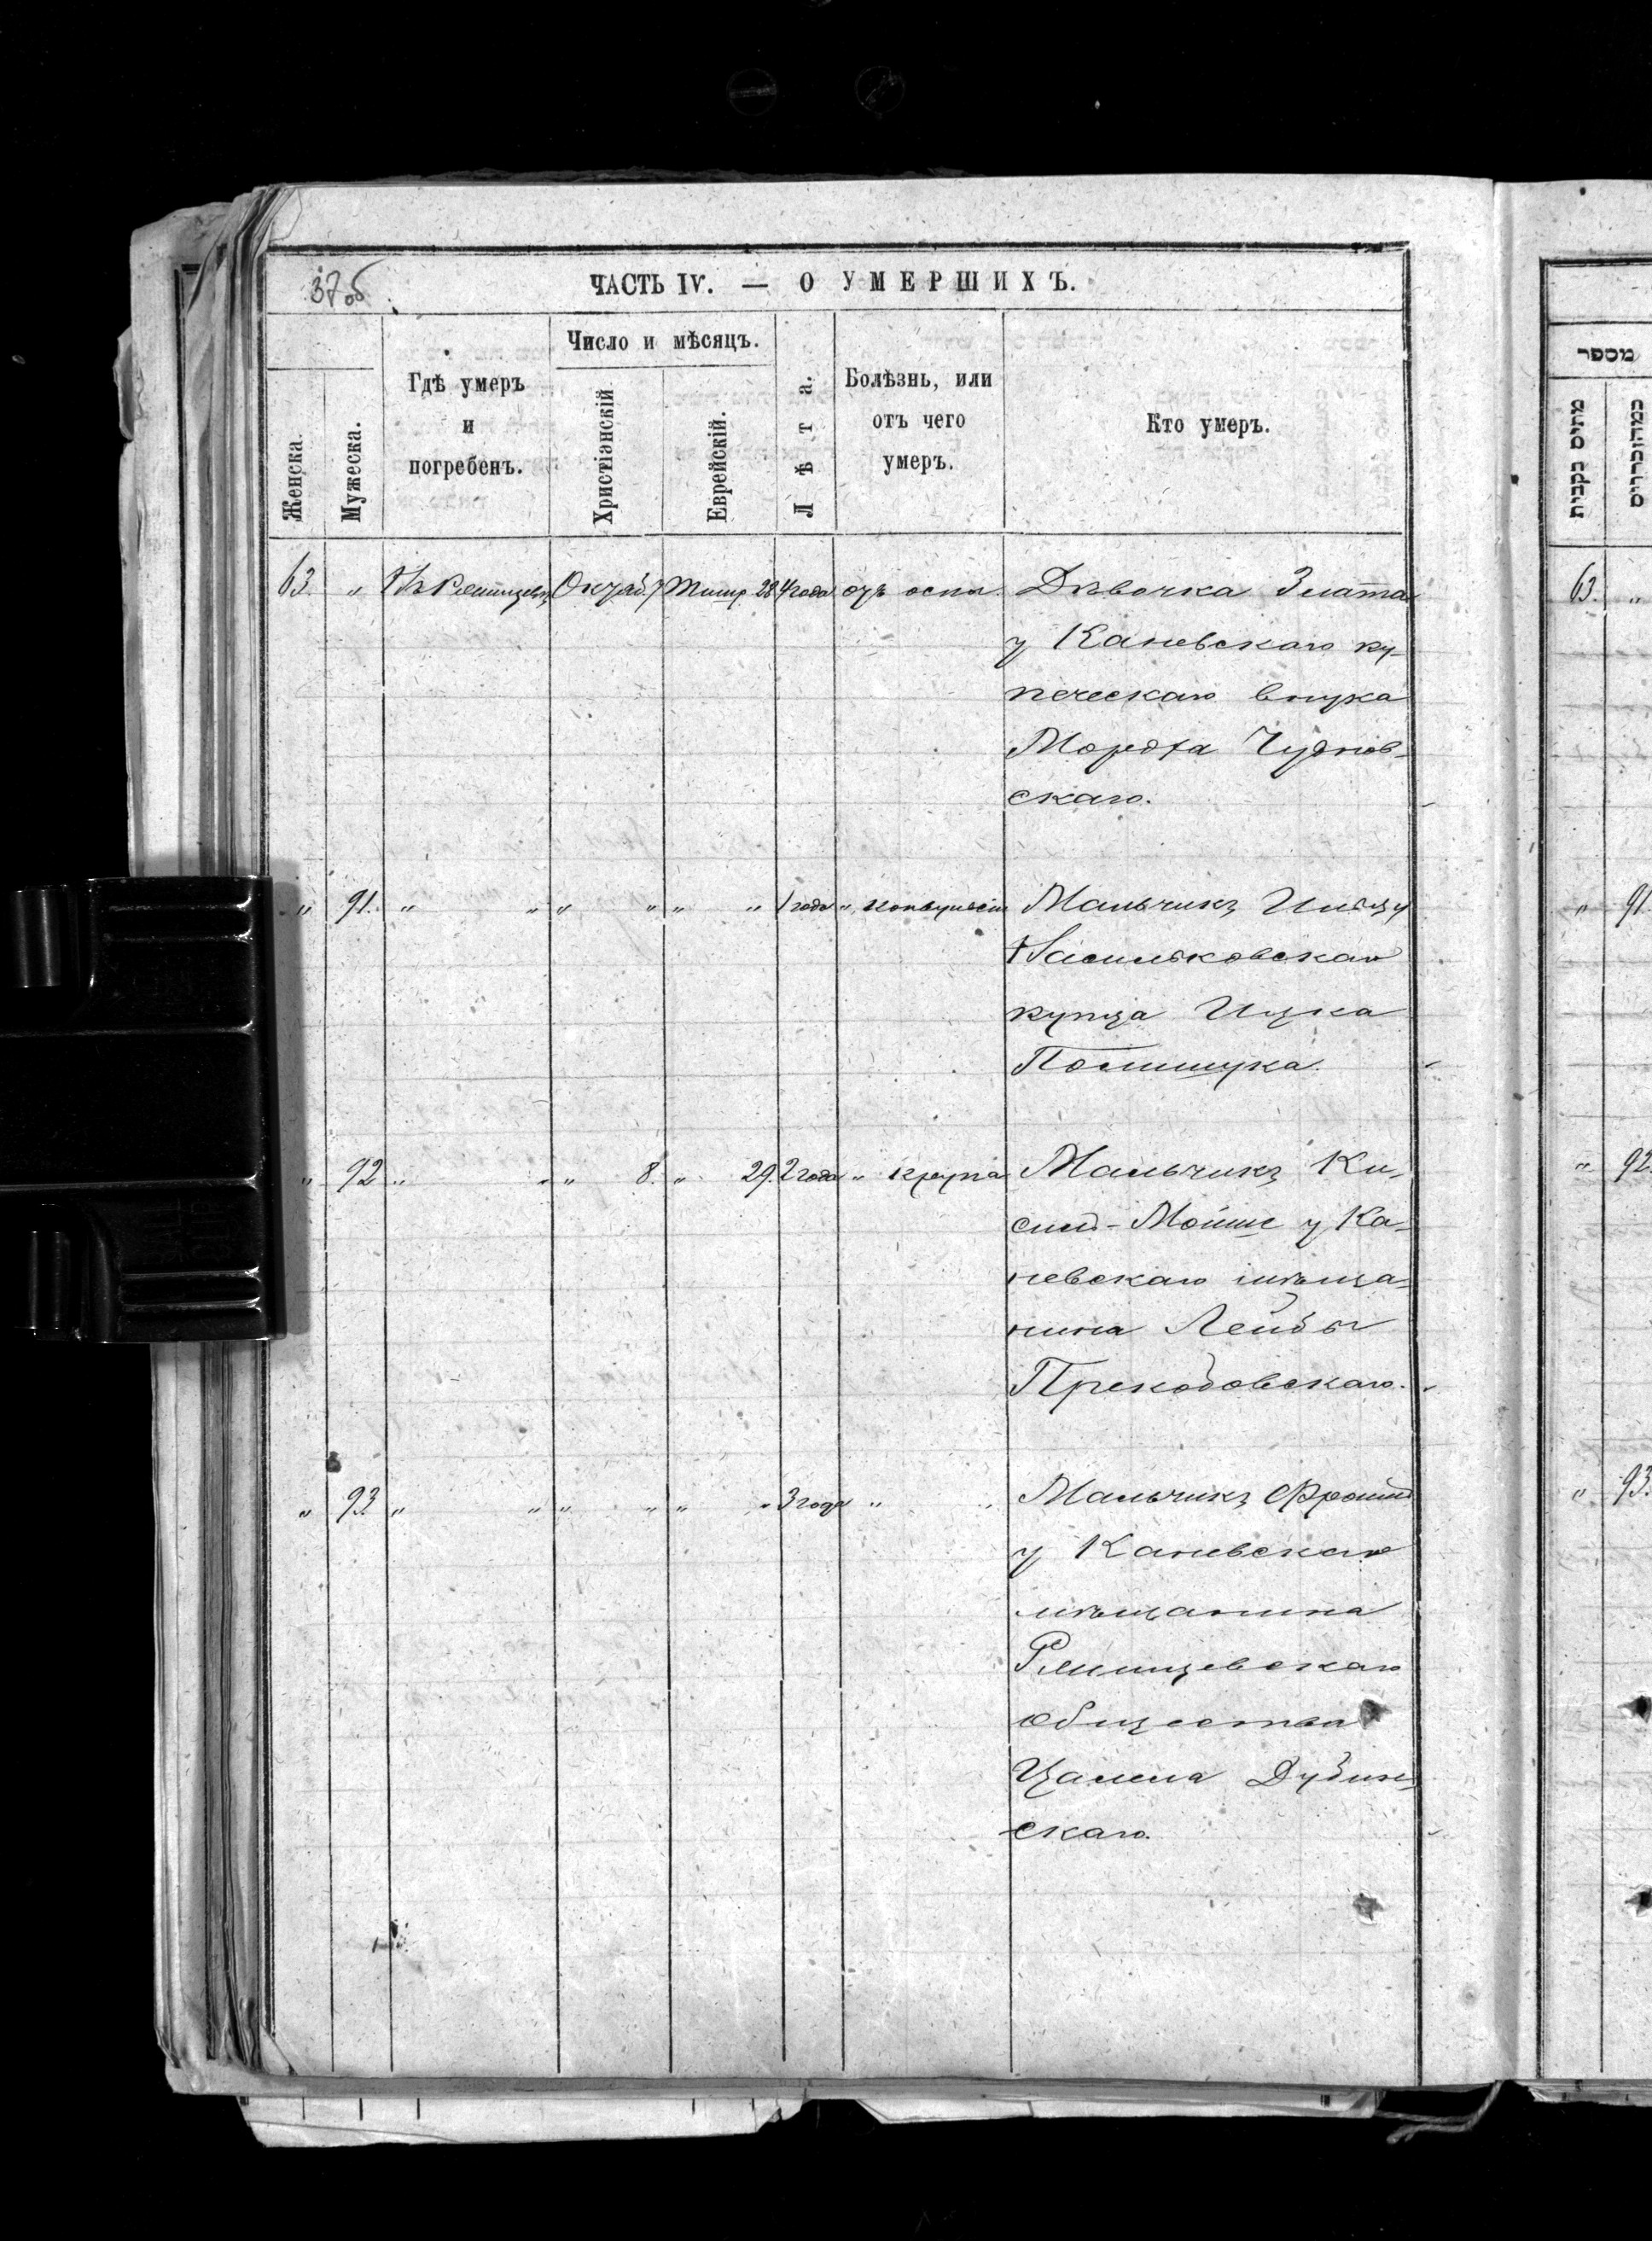 37об
ЧАСТЬ IV. — О УМЕРШИХЪ.
Женска.
Мужеска.
Гдѣ умеръ
и
погребенъ.
Число и мѣсяцъ.
Христіанскій
Еврейскій.
Лѣта.
Болѣзнь, или
отъ чего
умеръ.
Кто умеръ.
מספר
מתים נקבות
63. „ Въ Ржищевѣ Октяб. 7 Тишр. 28 4 года отъ оспы. Дѣвочка Злата
у Каневскаго ку-
печескаго внука
Мордха Чуднов-
скаго.
„ 91. „ „ „ „ „ „ 1 года „ конвульсіи Мальчикъ
Васильковскаго
купца Ицка
Полищука.
„ 92 „ „ „ 8. „ 29. 2 года „ крупа Мальчикъ Ки-
сил-Мойше у Ка-
невскаго мѣща-
нина Лейбы
„ 93. „ „ „ „ „ „ 3 года „ „ Мальчикъ Фроим
у Каневскаго
мѣщанина
Ржищевскаго
общества
Цалела Дубин-
скаго.
63. „
„ 91.
„ 92.
„ 93.